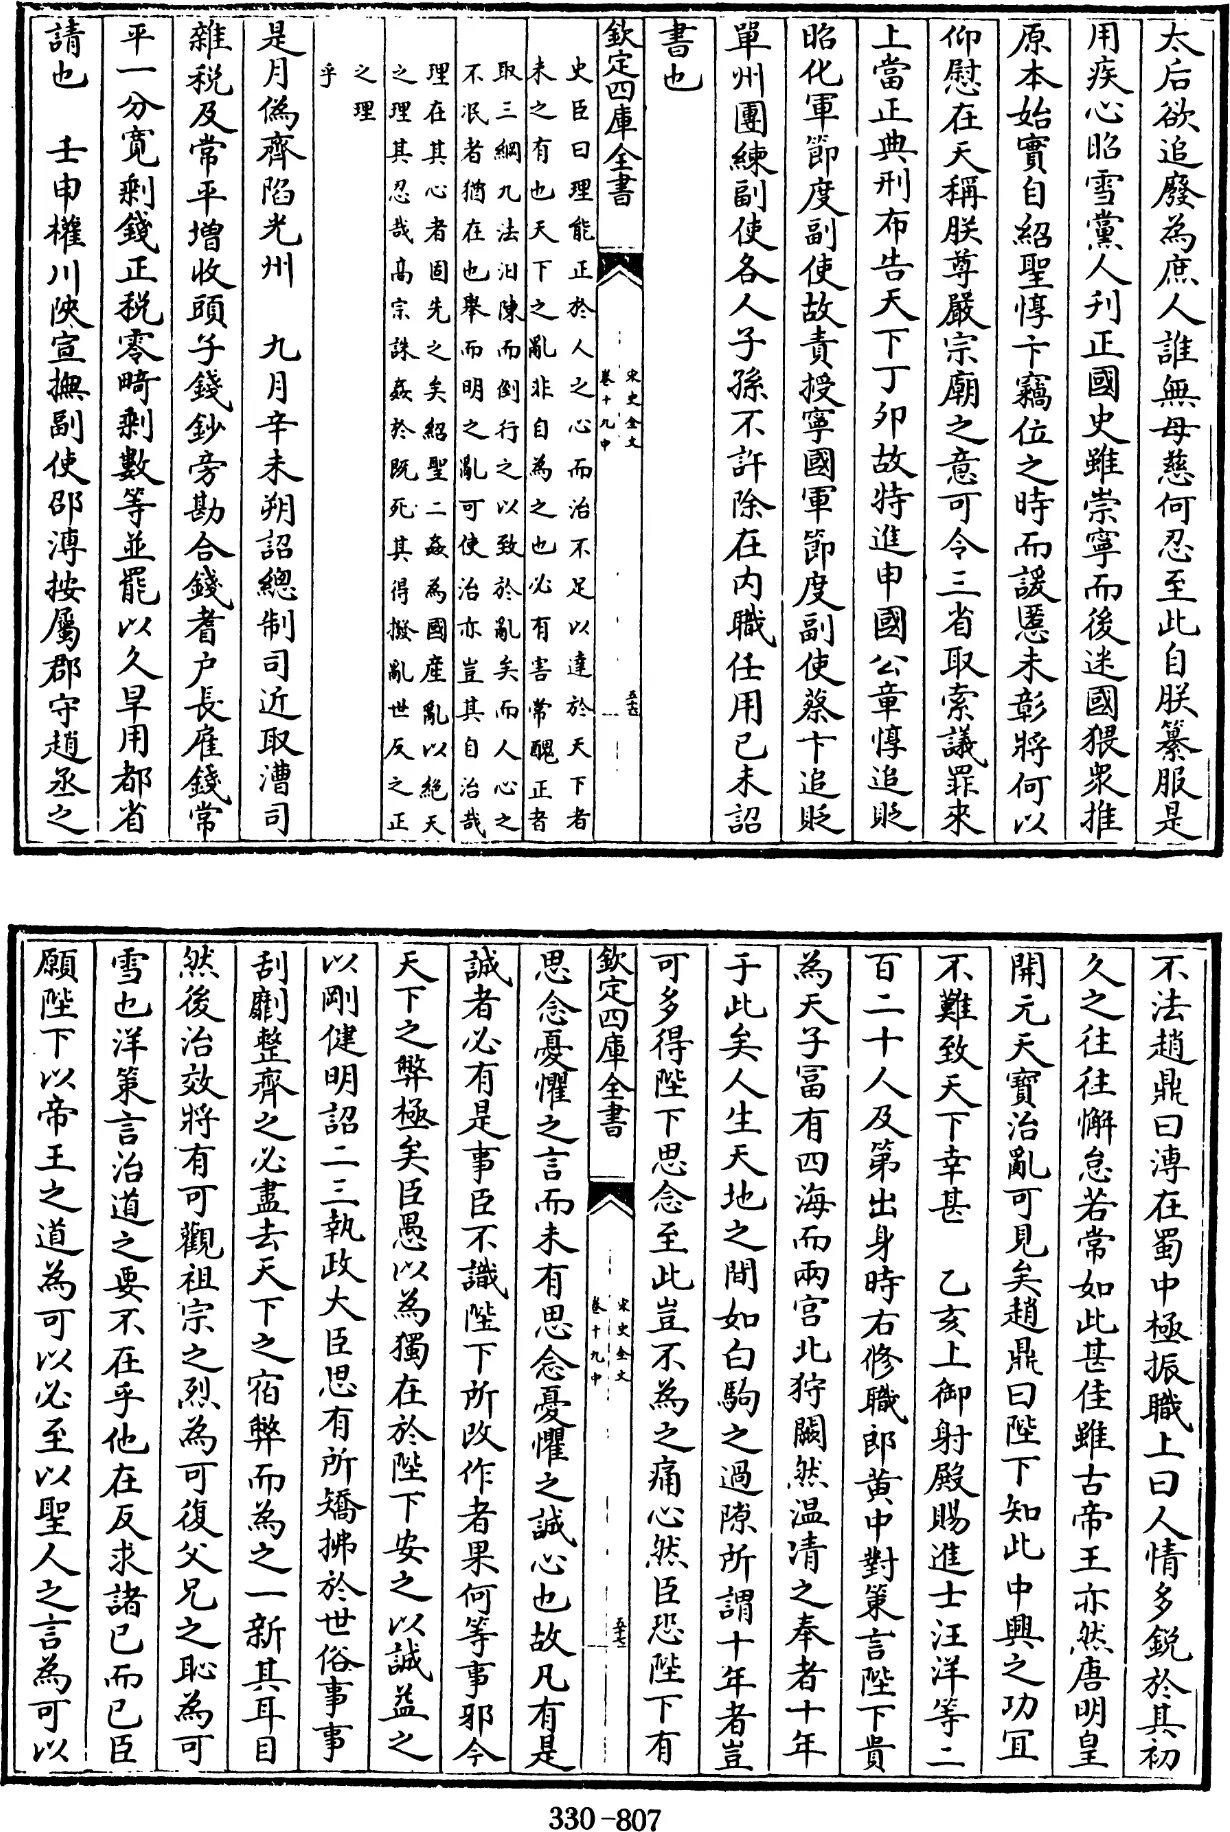 太后欲追廢為庶人誰無母慈何忍至此自朕纂服是
用疾心昭雪黨人刊正國史雖崇寧而後迷國猥衆推
原本始實自紹聖惇卞竊位之時而諼慝未彰將何以
仰慰在天稱朕尊嚴宗廟之意可令三省取索議罪來
上當正典刑布告天下丁卯故特進申國公章惇追貶
昭化軍節度副使故責授寧國軍節度副使蔡卞追貶
單州團練副使各人子孫不許除在內職任用己未詔
書也
欽定四庫全書
宋史全文
卷十九中
五十六
史臣曰理能正於人之心而治不足以達於天下者
未之有也天下之亂非自為之也必有害常醜正者
取三綱九法汩陳而倒行之以致於亂矣而人心之
不泯者猶在也舉而明之亂可使治亦豈其自治哉
理在其心者固先之矣紹聖二姦為國產亂以絶天
之理其忍哉高宗誅姦於既死其得撥亂世反之正
之理
乎
是月偽齊陷光州　九月辛未朔詔總制司近取漕司
雜税及常平增收頭子錢鈔旁勘合錢耆户長雇錢常
平一分寛剩錢正税零畸剩數等並罷以久旱用都省
請也　壬申權川陝宣撫副使邵溥按屬郡守趙丞之
不法趙鼎曰溥在蜀中極振職上曰人情多鋭於其初
久之往往懈怠若常如此甚佳雖古帝王亦然唐明皇
開元天寶治亂可見矣趙鼎曰陛下知此中興之功冝
不難致天下幸甚　乙亥上御射殿賜進士汪洋等二
百二十人及第出身時右修職郎黄中對策言陛下貴
為天子冨有四海而兩宫北狩闕然温凊之奉者十年
于此矣人生天地之間如白駒之過隙所謂十年者豈
可多得陛下思念至此豈不為之痛心然臣恐陛下有
欽定四庫全書
宋史全文
卷十九中
五十七
思念憂懼之言而未有思念憂懼之誠心也故凡有是
誠者必有是事臣不識陛下所改作者果何等事邪今
天下之弊極矣臣愚以為獨在於陛下安之以誠益之
以剛健明詔二三執政大臣思有所矯拂於世俗事事
刮劘整齊之必盡去天下之宿弊而為之一新其耳目
然後治效將有可觀祖宗之烈為可復父兄之恥為可
雪也洋策言治道之要不在乎他在反求諸己而已臣
願陛下以帝王之道為可以必至以聖人之言為可以
330-807